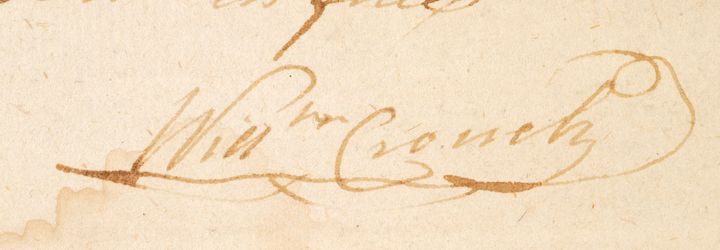 Willm Crouch